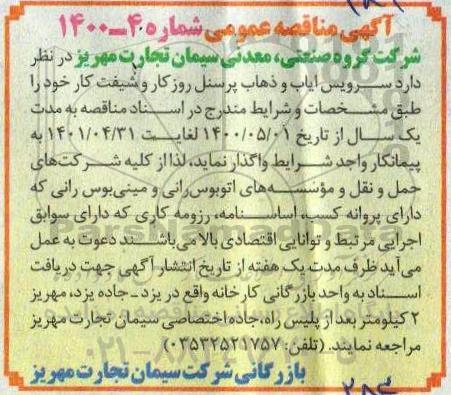 آگهی مناقصه عمومی شماره ۴-۱۴۰۰
شرکت گروه صنعتی، معدنی سیمان تجارت مهریز در نظر
دارد سرویس ایاب و ذهاب پرسنل روزکار و شیفت کار خود را
طبق مشخصات و شرایط مندرج در اسناد مناقصه به مدت
یک سال از تاریخ ۱۴۰۰/۰۵/۰۱ لغایت ۱۴۰۱/۰۴/۳۱ به
پیمانکار واجد شرایط واگذار نماید، لذا از کلیه شرکت‌های
حمل و نقل و مؤسسه‌های اتوبوس‌رانی و مینی‌بوس رانی که
دارای پروانه کسب، اساسنامه، رزومه کاری که دارای سوابق
اجرایی مرتبط و توانایی اقتصادی بالا می‌باشند دعوت به عمل
می‌آید ظرف مدت یک هفته از تاریخ انتشار آگهی جهت دریافت
اسناد به واحد بازرگانی کارخانه واقع در یزد ـ جاده یزد، مهریز
۲ کیلومتر بعد از پلیس راه، جاده اختصاصی سیمان تجارت مهریز
مراجعه نمایند. (تلفن: ۰۳۵۳۲۵۲۱۷۵۷)
بازرگانی شرکت سیمان تجارت مهریز